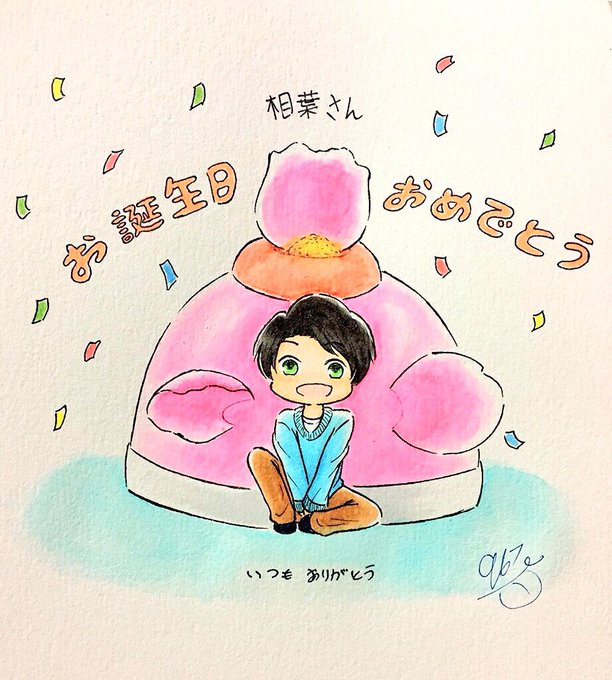 相葉さん
お誕生日
おめでとう
いつも ありがとう